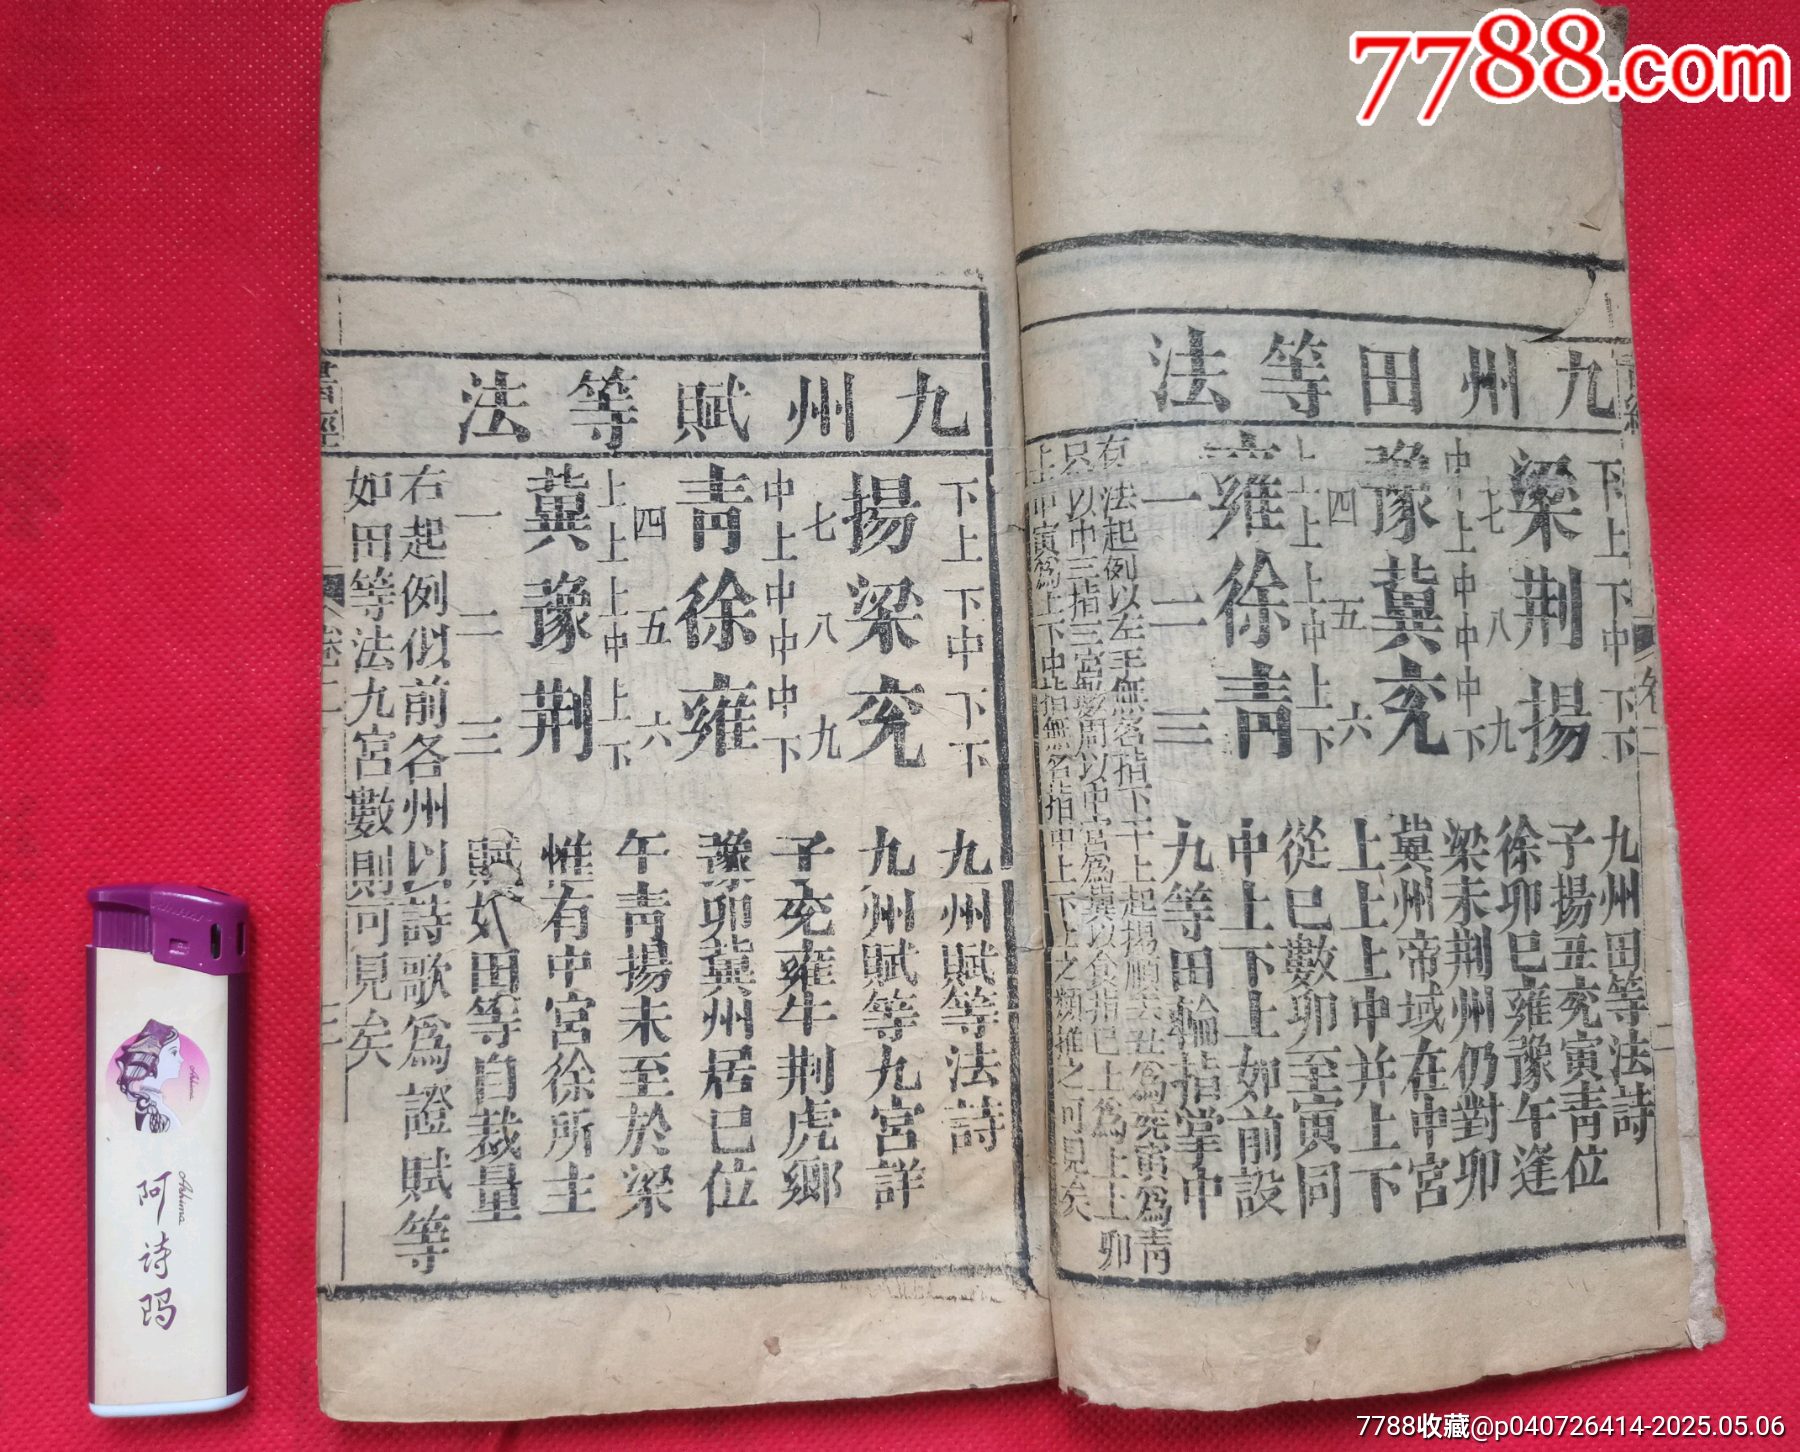 7788.com
九州田等法
下上下中下下
梁荆揚
七八九
中上中中中下
豫冀兖
四五六
上上上中上下
雍徐靑
一二三
九州田等法詩
子揚丑兖寅靑位
徐卯巳雍豫午逢
梁未荆州仍對卯
冀州帝域在中宮
上上上中并上下
從巳數卯至寅同
中上下上如前設
九等田輪指掌中
有法起例以左手無名指下干上起揚順去丑爲兖寅爲靑
只以中三指三宮數周以中宮爲冀以食指巳上爲上上卯
上中寅爲上下中指無名指中上下上之類推之可見矣
九州賦等法
下上下中下下
揚梁兖
七八九
中上中中中下
靑徐雍
四五六
上上上中上下
冀豫荆
一二三
九州賦等法詩
九州賦等九宮詳
子兖雍牛荆虎鄉
豫卯冀州居巳位
午靑揚未至於梁
惟有中宮徐所主
賦如田等自裁量
右起例似前各州以詩歌爲證賦等
如田等法九宮數則可見矣
書經 卷二
Ashima
阿诗玛
7788收藏@p040726414-2025.05.06